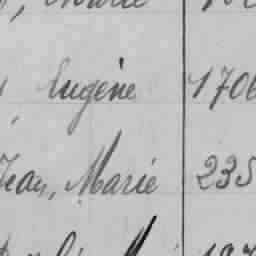 , Marie
, Eugène 1706
Jean, Marie 235